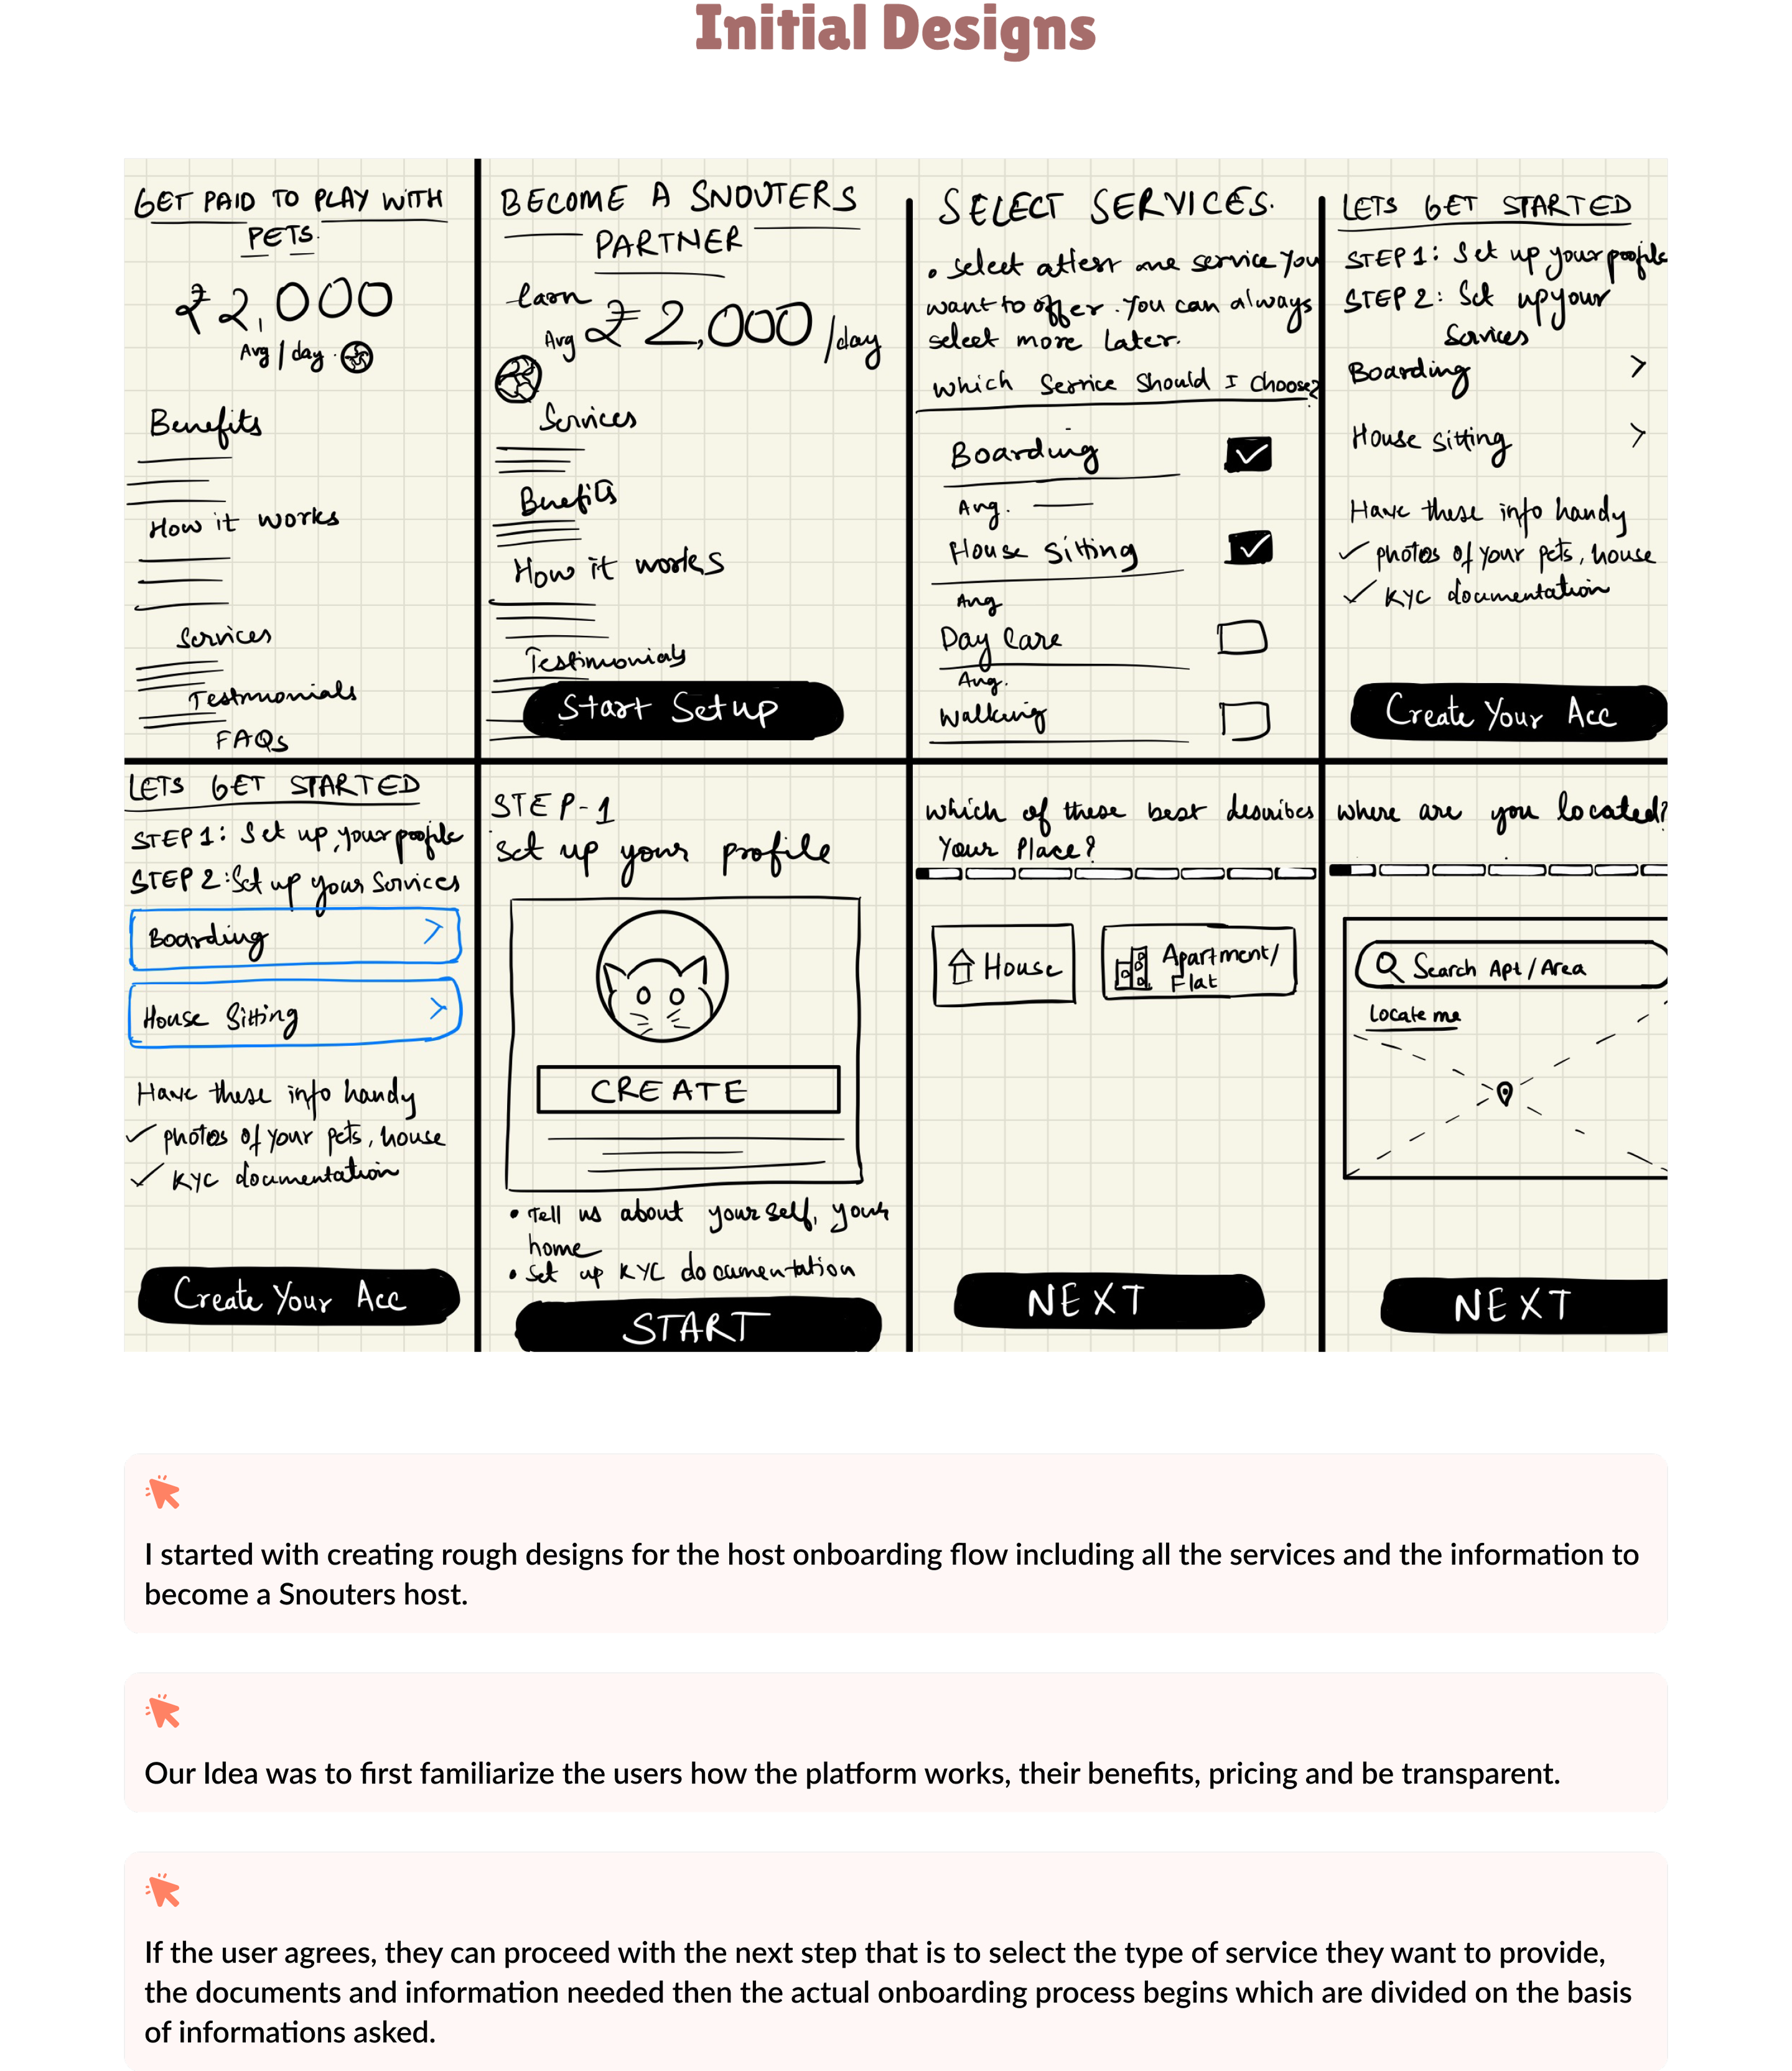 Initial Designs
GET PAID TO PLAY WITH
PETS.
₹2,000
Avg / day.
Benefits
How it works
Services
Testmonials
FAQs
BECOME A SNOUTERS
PARTNER
Earn
Avg ₹2,000 /day
Services
Benefits
How it works
Testimonials
Start Setup
SELECT SERVICES.
• Select atlest one service you
want to offer. You can always
select more later.
Which Service should I choose?
Boarding
Avg.
House Sitting
Avg
Day Care
Avg.
Walking
LETS GET STARTED
STEP 1: Set up your poofile
STEP 2: Set up your
Services
Boarding >
House sitting >
Have these info handy
✓ photos of your pets, house
✓ KYC documentation
Create Your Acc
LETS GET STARTED
STEP 1: Set up your poofile
STEP 2: Set up your Services
Boarding >
House Sitting >
Have these info handy
✓ photos of your pets, house
✓ KYC documentation
Create Your Acc
STEP-1
Set up your profile
CREATE
• Tell us about yourself, your
home
• Set up KYC documentation
START
Which of these best desribes
Your Place?
House
Apartment/
Flat
NEXT
Where are you located?
Search Apt/Area
Locate me
NEXT
I started with creating rough designs for the host onboarding flow including all the services and the information to
become a Snouters host.
Our Idea was to first familiarize the users how the platform works, their benefits, pricing and be transparent.
If the user agrees, they can proceed with the next step that is to select the type of service they want to provide,
the documents and information needed then the actual onboarding process begins which are divided on the basis
of informations asked.